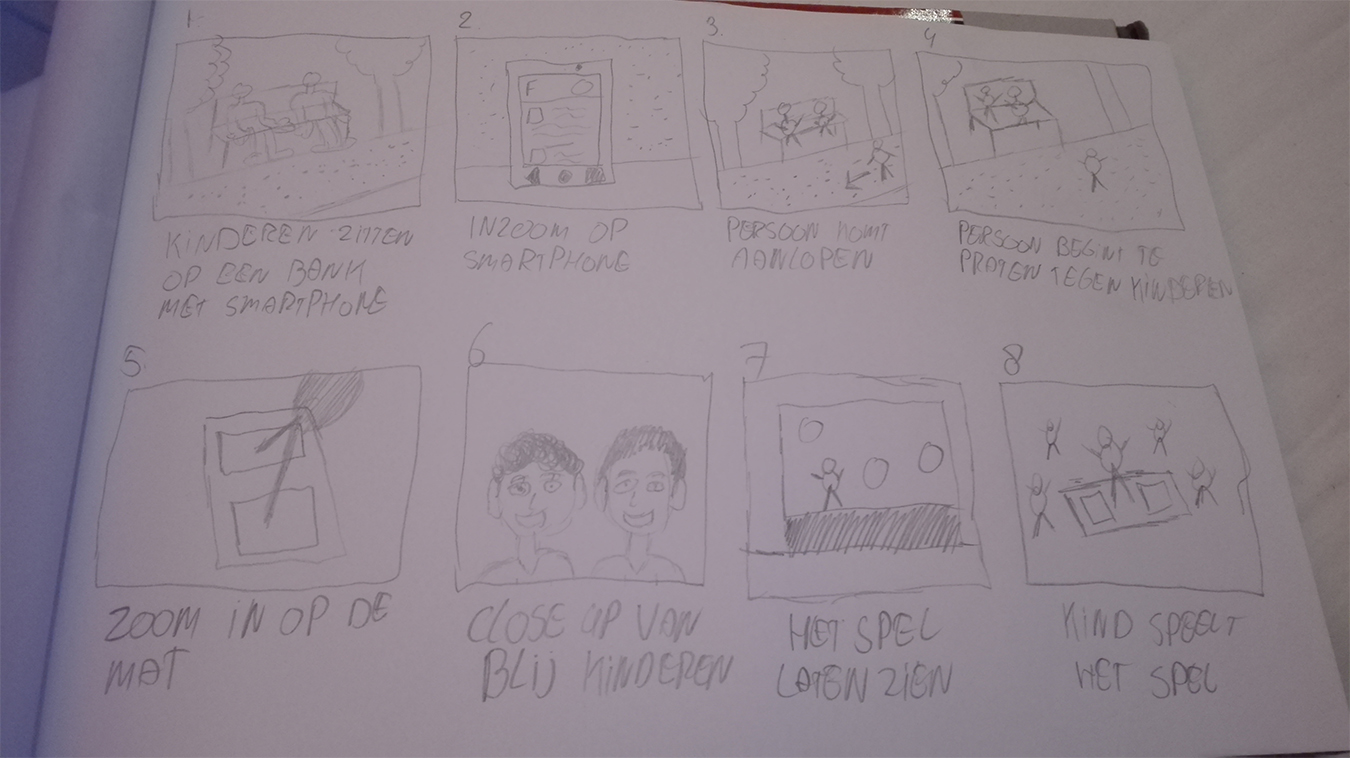 1.
KINDEREN ZITTEN
OP EEN BANK
MET SMARTPHONE
2
F
INZOOM OP
SMARTPHONE
3.
PERSOON KOMT
AANLOPEN
4
PERSOON BEGINT TE
PRATEN TEGEN KINDEREN
5.
ZOOM IN OP DE
MAT
6
CLOSE UP VAN
BLIJ KINDEREN
7
HET SPEL
LATEN ZIEN
8
KIND SPEELT
HET SPEL